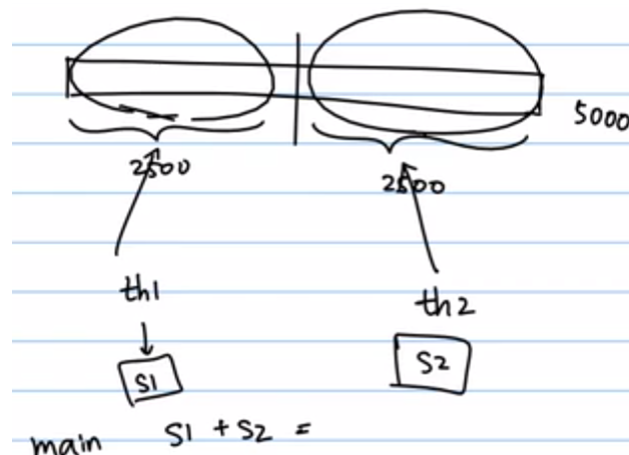 5000
2500
2500
th1
th2
S1
S2
main S1 + S2 =